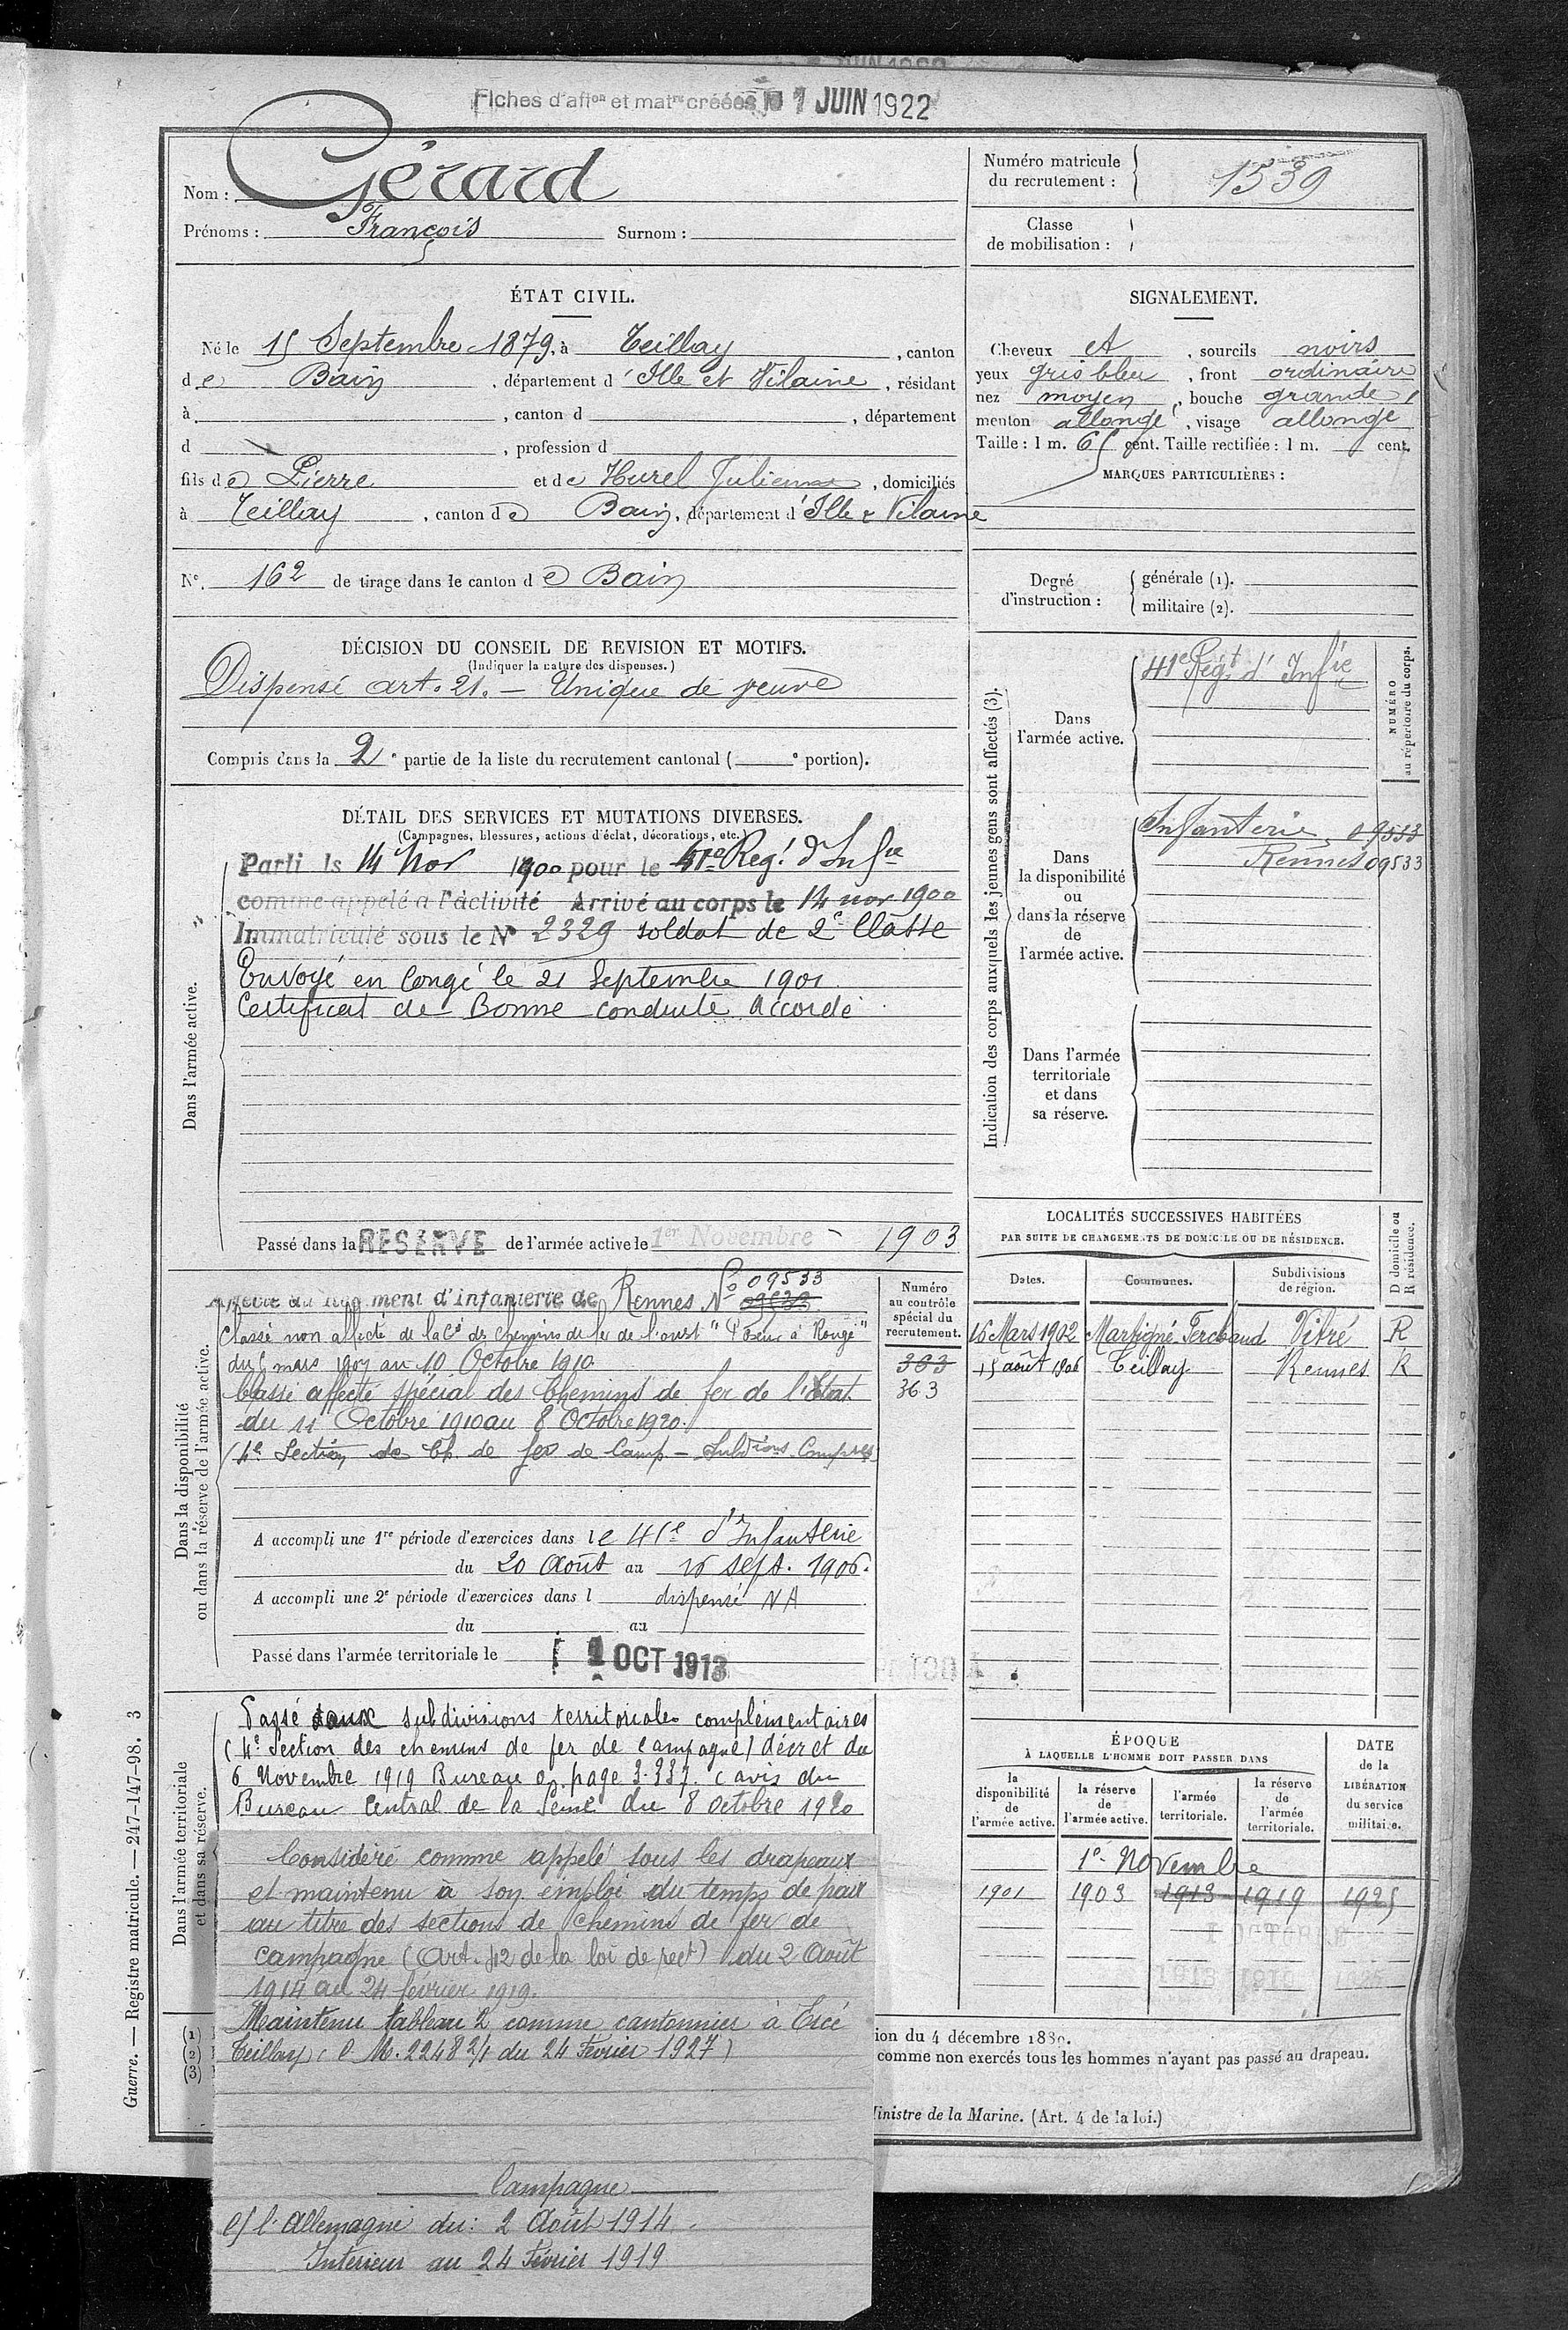 Fiches d'aff<sup>on</sup> et mat<sup>re</sup> créées le 1 JUIN 1922
Nom : Gérard
Prénoms : François Surnom :
Numéro matricule du recrutement : 1539
Classe de mobilisation :
ÉTAT CIVIL.
Né le 15 Septembre 1879, à Teillay, canton
de Bain, département d'Ille et Vilaine, résidant
à , canton d , département
d , profession d
fils de Pierre et de Hurel Julienne, domiciliés
à Teillay, canton de Bain, département d'Ille & Vilaine
N° 162 de tirage dans le canton de Bain
SIGNALEMENT.
Cheveux et , sourcils noirs
yeux gris bleu , front ordinaire
nez moyen , bouche grande
menton allongé , visage allongé
Taille : 1 m. 65 cent. Taille rectifiée : 1 m. cent.
MARQUES PARTICULIÈRES :
Degré d'instruction : générale (1).
militaire (2).
DÉCISION DU CONSEIL DE REVISION ET MOTIFS.
(Indiquer la nature des dispenses.)
Dispensé art. 21. — Unique de veuve
Compris dans la 2e partie de la liste du recrutement cantonal ( e portion).
DÉTAIL DES SERVICES ET MUTATIONS DIVERSES.
(Campagnes, blessures, actions d'éclat, décorations, etc.)
Dans l'armée active.
Parti le 14 Nov 1900 pour le 41e Reg.t d'Infie
comme appelé à l'activité Arrivé au corps le 14 nov 1900
Immatriculé sous le N° 2329 soldat de 2e Classe
Envoyé en Congé le 21 Septembre 1901
Certificat de Bonne conduite Accordé
Passé dans la RÉSERVE de l'armée active le 1er Novembre 1903
Indication des corps auxquels les jeunes gens sont affectés (3).
NUMÉRO au répertoire du corps.
Dans l'armée active.
41e Régt d'Infie
Dans la disponibilité ou dans la réserve de l'armée active.
Infanterie 09533
Rennes 09533
Dans l'armée territoriale et dans sa réserve.
Dans la disponibilité ou dans la réserve de l'armée active.
Affecté au Régiment d'infanterie de Rennes N° 09533
Classé non affecté de la Cie des Chemins de fer de l'ouest "Poseur à Rougé"
du 5 mars 1907 au 10 Octobre 1910
Classé affecté spécial des Chemins de fer de l'Etat
du 11 Octobre 1910 au 8 Octobre 1920.
(4e Section de Ch. de fer de Camp – Subdions Compres
Numéro au contrôle spécial du recrutement.
303
363
A accompli une 1re période d'exercices dans le 41e d'Infanterie
du 20 Août au 16 Sept. 1906.
A accompli une 2e période d'exercices dans l dispensé NA
du au
Passé dans l'armée territoriale le 1 OCT 1913
LOCALITÉS SUCCESSIVES HABITÉES
PAR SUITE DE CHANGEMENTS DE DOMICILE OU DE RÉSIDENCE.
Dates. Communes. Subdivisions de région. D domicile ou R résidence.
16 Mars 1902 Martigné Ferchaud Vitré R
15 août 1906 Teillay Rennes R
Dans l'armée territoriale et dans sa réserve.
Passé aux subdivisions territoriales complémentaires
(4e Section des chemins de fer de Campagne) décret du
6 Novembre 1919 Bureau page 3.337. (avis du
Bureau Central de la Seine du 8 Octobre 1920
Considéré comme appelé sous les drapeaux
et maintenu à son emploi du temps de paix
au titre des sections de chemins de fer de
campagne (Art. 42 de la loi de rect) du 2 Août
1914 au 24 février 1919.
Maintenu tableau 2 comme cantonnier à Ercé
Teillay (D.M. 2248 2/1 du 24 Février 1927)
Campagne
C/ l'Allemagne du : 2 Août 1914
Intérieur au 24 Février 1919
ÉPOQUE
À LAQUELLE L'HOMME DOIT PASSER DANS
la disponibilité de l'armée active. la réserve de l'armée active. l'armée territoriale. la réserve de l'armée territoriale.
DATE de la LIBÉRATION du service militaire.
1er Novembre
1901 1903 1913 1919 1925
1 OCTOBRE
(1)
(2)
(3)
ion du 4 décembre 1889.
comme non exercés tous les hommes n'ayant pas passé au drapeau.
Ministre de la Marine. (Art. 4 de la loi.)
Guerre. — Registre matricule. — 247-147-98. 3